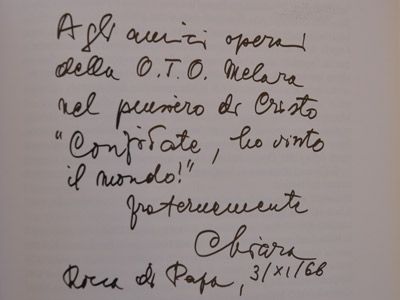 Agli amici operai
della O.T.O. Melara
nel pensiero di Cristo
"Confidate, ho vinto
il mondo!"
fraternamente
Chiara
Rocca di Papa, 3/XI/66